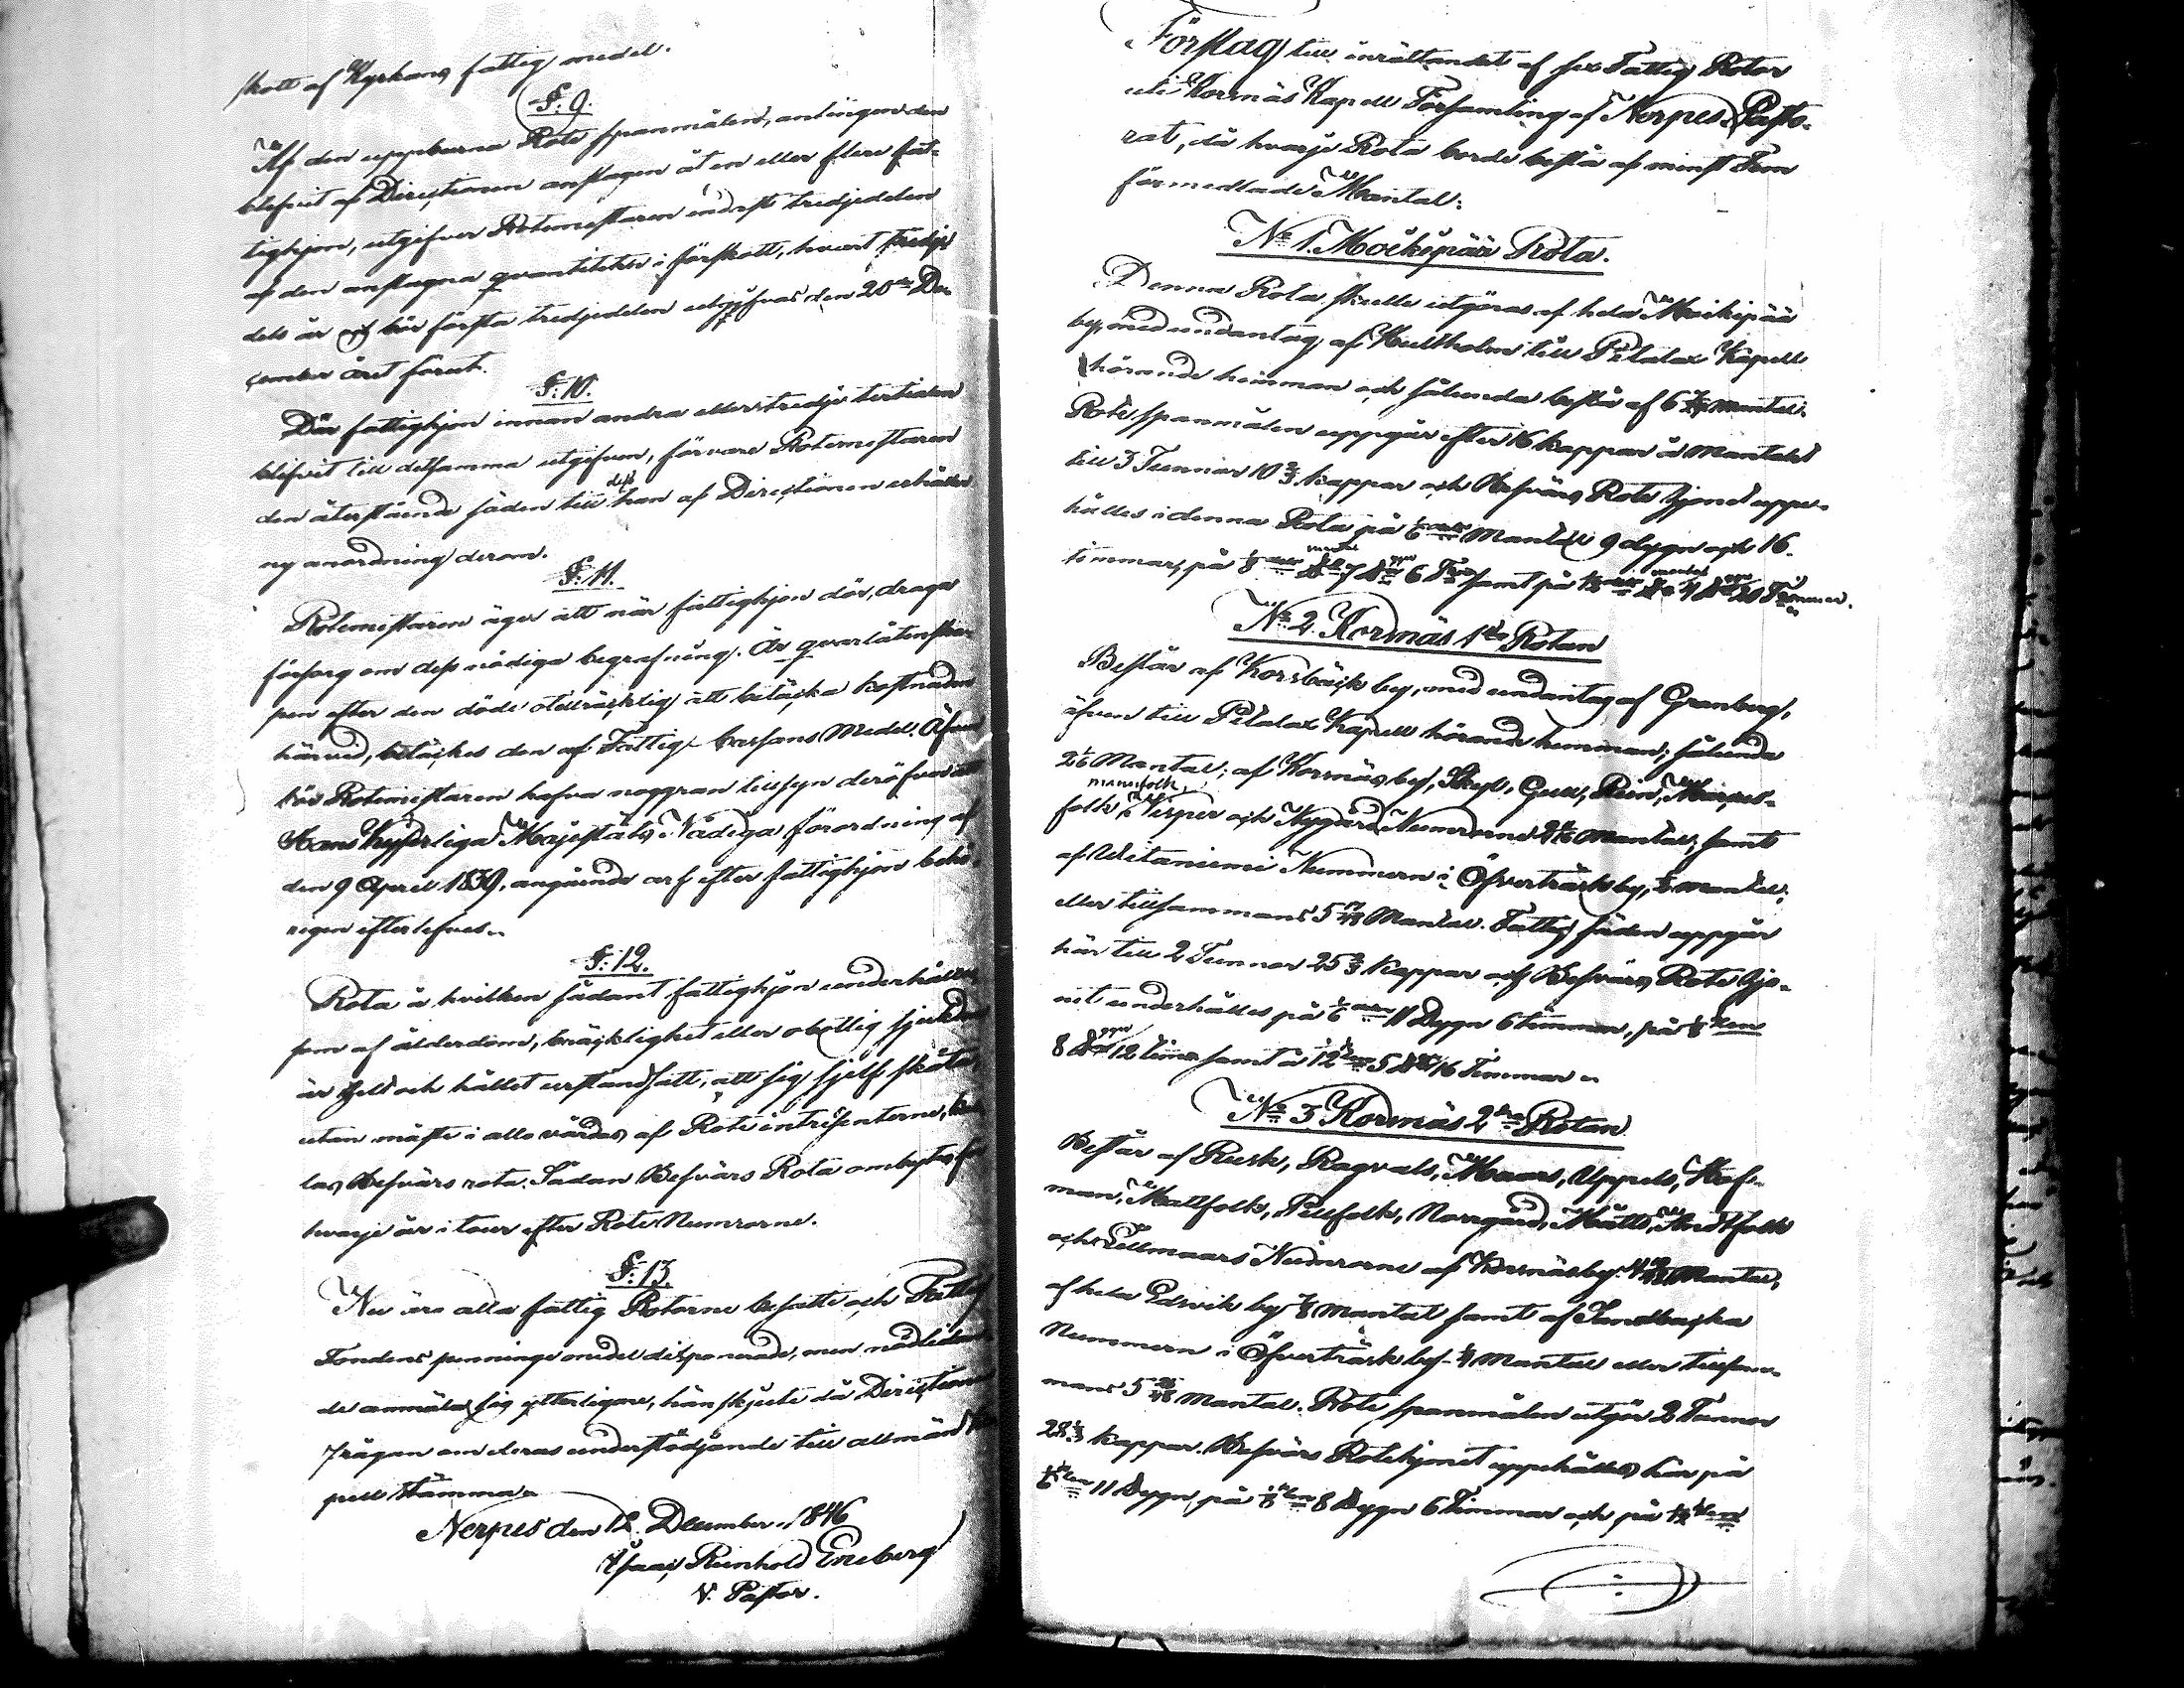 skott af Kyrkans fattig medel.
§: 9.
Af den uppburna Rote spanmålen, antingen den
blifvit af Directionen anslagen åt en eller flere fat-
tighjon, utgifver Rotemästaren endast tredjedelen
af den anslagna qvantiteten i förskott, hvart tredje
dels år och bör första tredjedelen utgifvas den 20de De-
cember året förut.
§: 10.
Dör fattighjon innan andra eller tredje tertialen
blifvit till detsamma utgifven, förvare Rotemästaren
den återstående säden till dess han af Directionen erhåller
ny anordning derom.
§: 11.
Rotemästaren äger att när fattighjon dör, draga
försorg om dess nödiga begrafning. Är qvarlåtenska-
pen efter den döde otillräcklig att betäcka kostnaden
härvid, betäckes den af Fattig-Cassans Medel. Äfven
bör Rotemästaren hafva noggran tillsyn deröfver att
Hans Kejserliga Majestäts Nådiga förordning af
den 9 April 1839, angående arf efter fattighjon behö-
rigen efterlefves.
§: 12.
Rota å hvilken sådant fattighjon underhålles
som af ålderdom, bräcklighet eller obotlig sjukdom
är helt och hållet urståndsatt, att sig sjelf sköta
utan måste i allo vårdas af Rote intressenterne, kal-
las Besvärs rota. Sådan Besvärs Rota ombytes för
hvarje år i tour efter Rote Numrorne.
§: 13.
Nu äro alla fattig Rotorne besatte och Fattig
Fondens penninge medel disponerade, men nödlidan-
de anmäla sig ytterligare, hänskjute då Directionen
frågan om deras understödjande till allmän Ka-
pell stämma.
Nerpes den 12. December 1846
Isaac Reinhold Eneberg
V. Pastor.
Förslag till inrättandet af sex Fattig Rotor
uti Korsnäs Kapell Församling af Nerpes Pasto-
rat, då hvarje Rota borde bestå af minst Fem
förmedlade Mantal:
No 1. Moikipää Rota.
Denna Rota skulle utgöras af hela Moikipää
by, med undantag af Hultholm till Petalax Kapell
hörande hemman och sålunda bestå af 6 mantal.
Rote spanmålen uppgår efter 16 kappar å Mantalet
till 3 Tunnor 10 2/3 kappar och Besvärs Rote hjonet uppe-
hålles i denna Rota på 1/6 dels Mantal 9 dygn och 16.
timmar, på 1/8 dels mantal 7 Dygn 6 Tim samt på 1/12 dels mantal 4 Dygn 20 Timmar.
No 2. Korsnäs 1sta Rotan
Består af Korsbäck by, med undantag af Granberg,
äfven till Petalax Kapell hörande hemman; sålunda
2 1/6 Mantal; af Korsnäs by, Skyt, Gull, Rein,
mannfolk,
folk, Vesper och Nygård Numrorne Mantal, samt
af Witaniemi Nummern i Öfverträsk by, mantal;
eller tillsammans 5 17/48 Mantal. Fattig säden uppgår
här till 2 Tunnor 25 2/3 Kappar och Besvärs Rote hjo-
net underhålles på 1/6 delen 11 Dygn 6 timmar, på 1/8 delen
8 Dygn 12 Tima samt å 1/12 delen 5 Dygn 16 Timmar
No 3 Korsnäs 2dra Rotan
Består af Rusk, Ragvals, Maars, Uppels, Haf-
man, Mattfolk, Pellfolk, Norrgård, Måtts,
och Tellmaars Numrorne af Korsnäs by. Mantal,
af hela Edsvik by 7/8 Mantal samt af Sandbacka
Nummern i Öfverträsk by 1/4 Mantal eller tillsam-
mans 5 Mantal. Rote spanmålen utgör 2 Tunnor
28 kappar. Besvärs Rotehjonet uppehålles här på
1/6 delen 11 Dygn, på 1/8 delen 8 Dygn 6 Timmar och på 1/12 delen